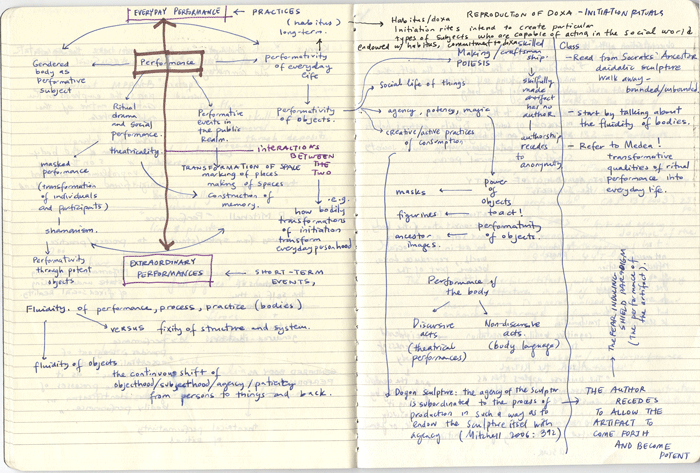 EVERYDAY PERFORMANCE ← PRACTICES
(habitus)
long-term.
Gendered
body as
performative
subject
Performance
Performativity
of everyday
life
Ritual
drama
and social
performance.
Performative
events in
the public
Realm.
Performativity
of objects.
theatricality.
INTERACTIONS
BETWEEN
THE
TWO
masked
performance
(transformation
of individuals
and participants)
TRANSFORMATION OF SPACE
marking of places
making of spaces
Construction of
memory.
e.g.
how bodily
transformations
of initiation
transform
everyday personhood
shamanism.
Performativity
through potent
objects
EXTRAORDINARY
PERFORMANCES
← SHORT-TERM
EVENTS,
Fluidity of performance, process, practice (bodies)
VERSUS fixity of structure and system.
fluidity of objects
the continuous shift of
objecthood/subjecthood/agency/paticity
from persons to things and back.
REPRODUCTION OF DOXA - INITIATION RITUALS
Habitus/doxa
Initiation rites intend to create particular
types of subjects, who are capable of acting in the social world
endowed w/ habitus, commitment to doxa
Making/
POIESIS
skilled
craftsman
ship:
skilfully
made
artefact
has no
author
authorship
recedes
to
anonymity
Social life of things
agency, potency, magic
creative/active practices
of consumption
masks
figurines
ancestor
images.
power
of
objects
to act!
performativity
of objects.
Performance of
the body
Discursive
acts.
(theatrical
performances)
Non-discursive
acts.
(body language)
Dogon sculpture: the agency of the sculptor
is subordinated to the process of
production in such a way as to
endow the sculpture itself with
agency (Mitchell 2006: 392)
Class
- Read from Socrates' Ancestor
daidalic sculpture
walk away -
bounded/unbound.
- start by talking about
the fluidity of bodies.
- Refer to Medea!
transformative
qualities of ritual
Performance into
everyday life.
THE FEAR INDUCING
SHIELD PARADIGM
(The performance of
the artifact).
THE AUTHOR
RECEDES
TO ALLOW THE
ARTIFACT TO
COME FORTH
AND BECOME
POTENT